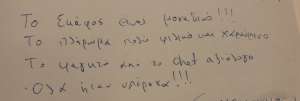 Το Σκάφος είναι μοναδικό!!!
Το πλήρωμα πολύ φιλικό και χαρούμενο
Το φαγητό από το chef αξιόλογο
Όλα ήταν υπέροχα!!!